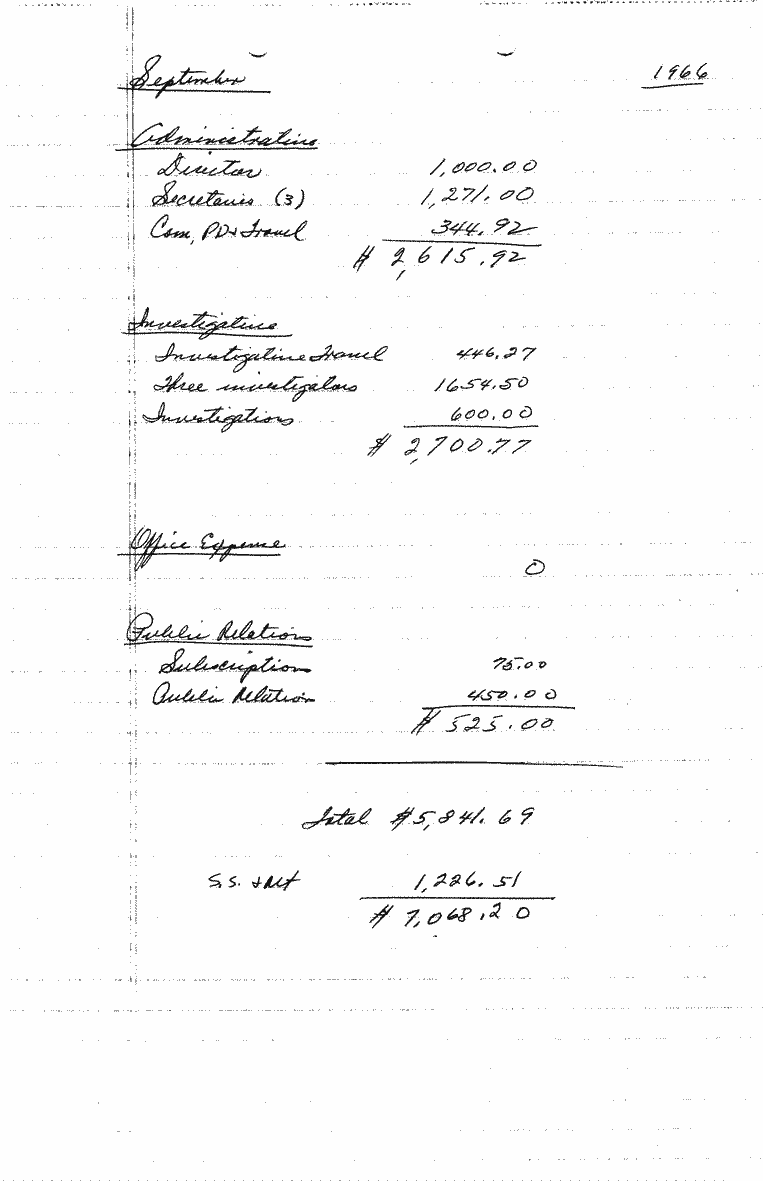 September 1966
Administrative
Director 1,000.00
Secretaries (3) 1,271.00
Com, PD & Travel 344.92
$ 2,615.92
Investigative
Investigative Travel 446.27
Three investigators 1654.50
Investigations 600.00
$ 2,700.77
Office Expense
0
Public Relations
Subscriptions 75.00
Public Relation 450.00
$ 525.00
Total $5,841.69
S.S. & Ret 1,226.51
$ 7,068.20